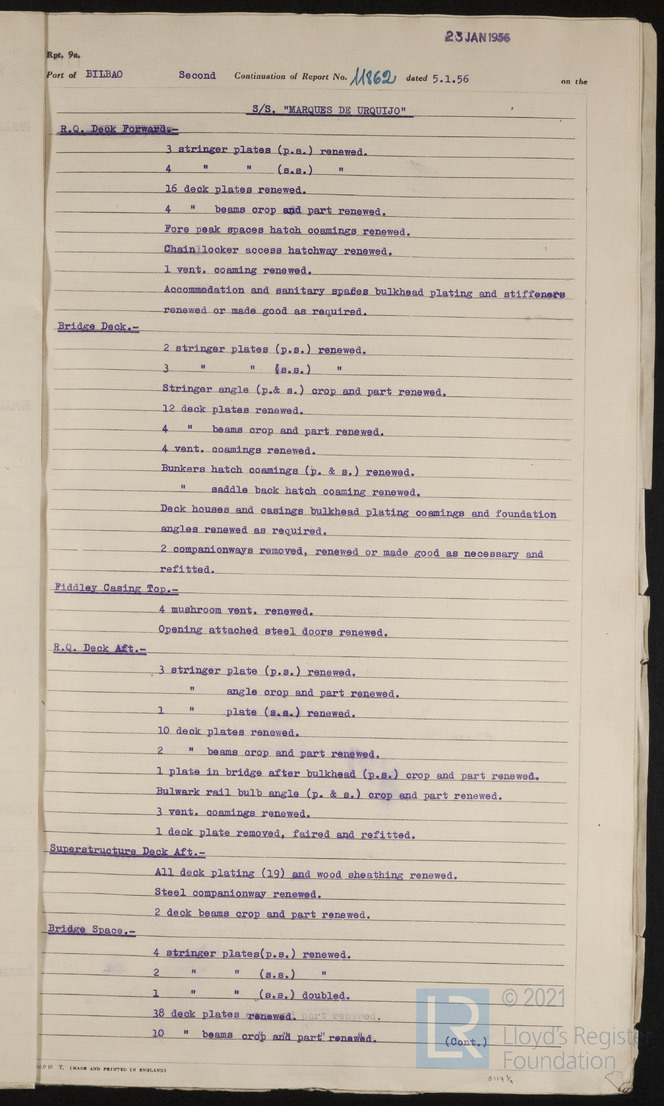 23 JAN 1956
Rpt. 9a.
Port of BILBAO Second Continuation of Report No. 11862 dated 5.1.56 on the
S/S. "MARQUES DE URQUIJO"
R.Q. Deck Forward.-
3 stringer plates (p.s.) renewed.
4 " " (s.s.) "
16 deck plates renewed.
4 " beams crop and part renewed.
Fore peak spaces hatch coamings renewed.
Chain locker access hatchway renewed.
1 vent. coaming renewed.
Accommodation and sanitary spaces bulkhead plating and stiffeners
renewed or made good as required.
Bridge Deck.-
2 stringer plates (p.s.) renewed.
3 " " (s.s.) "
Stringer angle (p.& s.) crop and part renewed.
12 deck plates renewed.
4 " beams crop and part renewed.
4 vent. coamings renewed.
Bunkers hatch coamings (p. & s.) renewed.
" saddle back hatch coaming renewed.
Deck houses and casings bulkhead plating coamings and foundation
angles renewed as required.
2 companionways removed, renewed or made good as necessary and
refitted.
Fiddley Casing Top.-
4 mushroom vent. renewed.
Opening attached steel doors renewed.
R.Q. Deck Aft.-
3 stringer plate (p.s.) renewed.
" angle crop and part renewed.
1 " plate (s.s.) renewed.
10 deck plates renewed.
2 " beams crop and part renewed.
1 plate in bridge after bulkhead (p.s.) crop and part renewed.
Bulwark rail bulb angle (p. & s.) crop and part renewed.
3 vent. coamings renewed.
1 deck plate removed, faired and refitted.
Superstructure Deck Aft.-
All deck plating (19) and wood sheathing renewed.
Steel companionway renewed.
2 deck beams crop and part renewed.
Bridge Space.-
4 stringer plates(p.s.) renewed.
2 " " (s.s.) "
1 " " (s.s.) doubled.
38 deck plates renewed.
10 " beams crop and part renewed.
(Cont.)
T. (MADE AND PRINTED IN ENGLAND)
LR © 2021
Lloyd's Register
Foundation